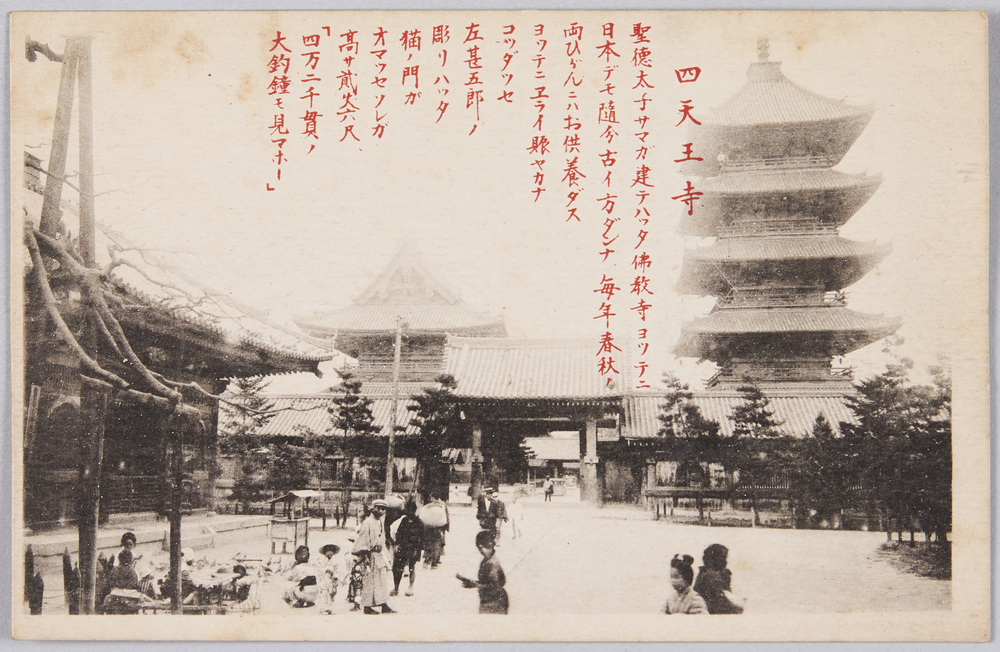 四天王寺
聖徳太子サマガ建テハッタ佛教寺ヨッテニ
日本デモ随分古イ方ダンナ、毎年春秋ノ
両ひがんニハお供養ダス
ヨッテニヱライ賑ヤカナ
コッダッセ
左甚五郎ノ
彫リハッタ
猫ノ門ガ
オマッセソレガ
高サ貳丈六尺、
「四万二千貫ノ
大釣鐘モ見マホー」